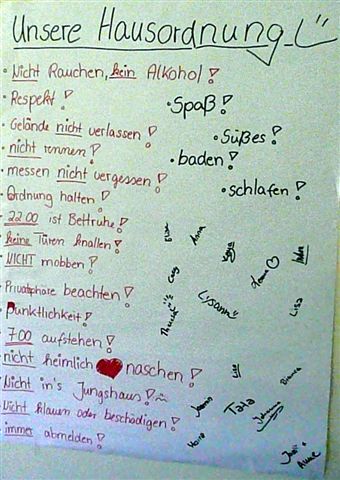 Unsere Hausordnung
• Nicht Rauchen, kein Alkohol!
• Respekt!
• Gelände nicht verlassen!
• nicht rennen!
• messen nicht vergessen!
• Ordnung halten!
• 22 00 ist Bettruhe!
• keine Türen knallen!
• NICHT mobben!
• Privatsphäre beachten!
• Pünktlichkeit!
• 7 00 aufstehen!
• nicht heimlich naschen!
• Nicht in's Jungshaus!
• Nicht klauen oder beschädigen!
• immer abmelden!
• Spaß!
• Süßes!
• baden!
• schlafen!
Anna
Lisann
Lisa
Bianca
Tara
Johanna